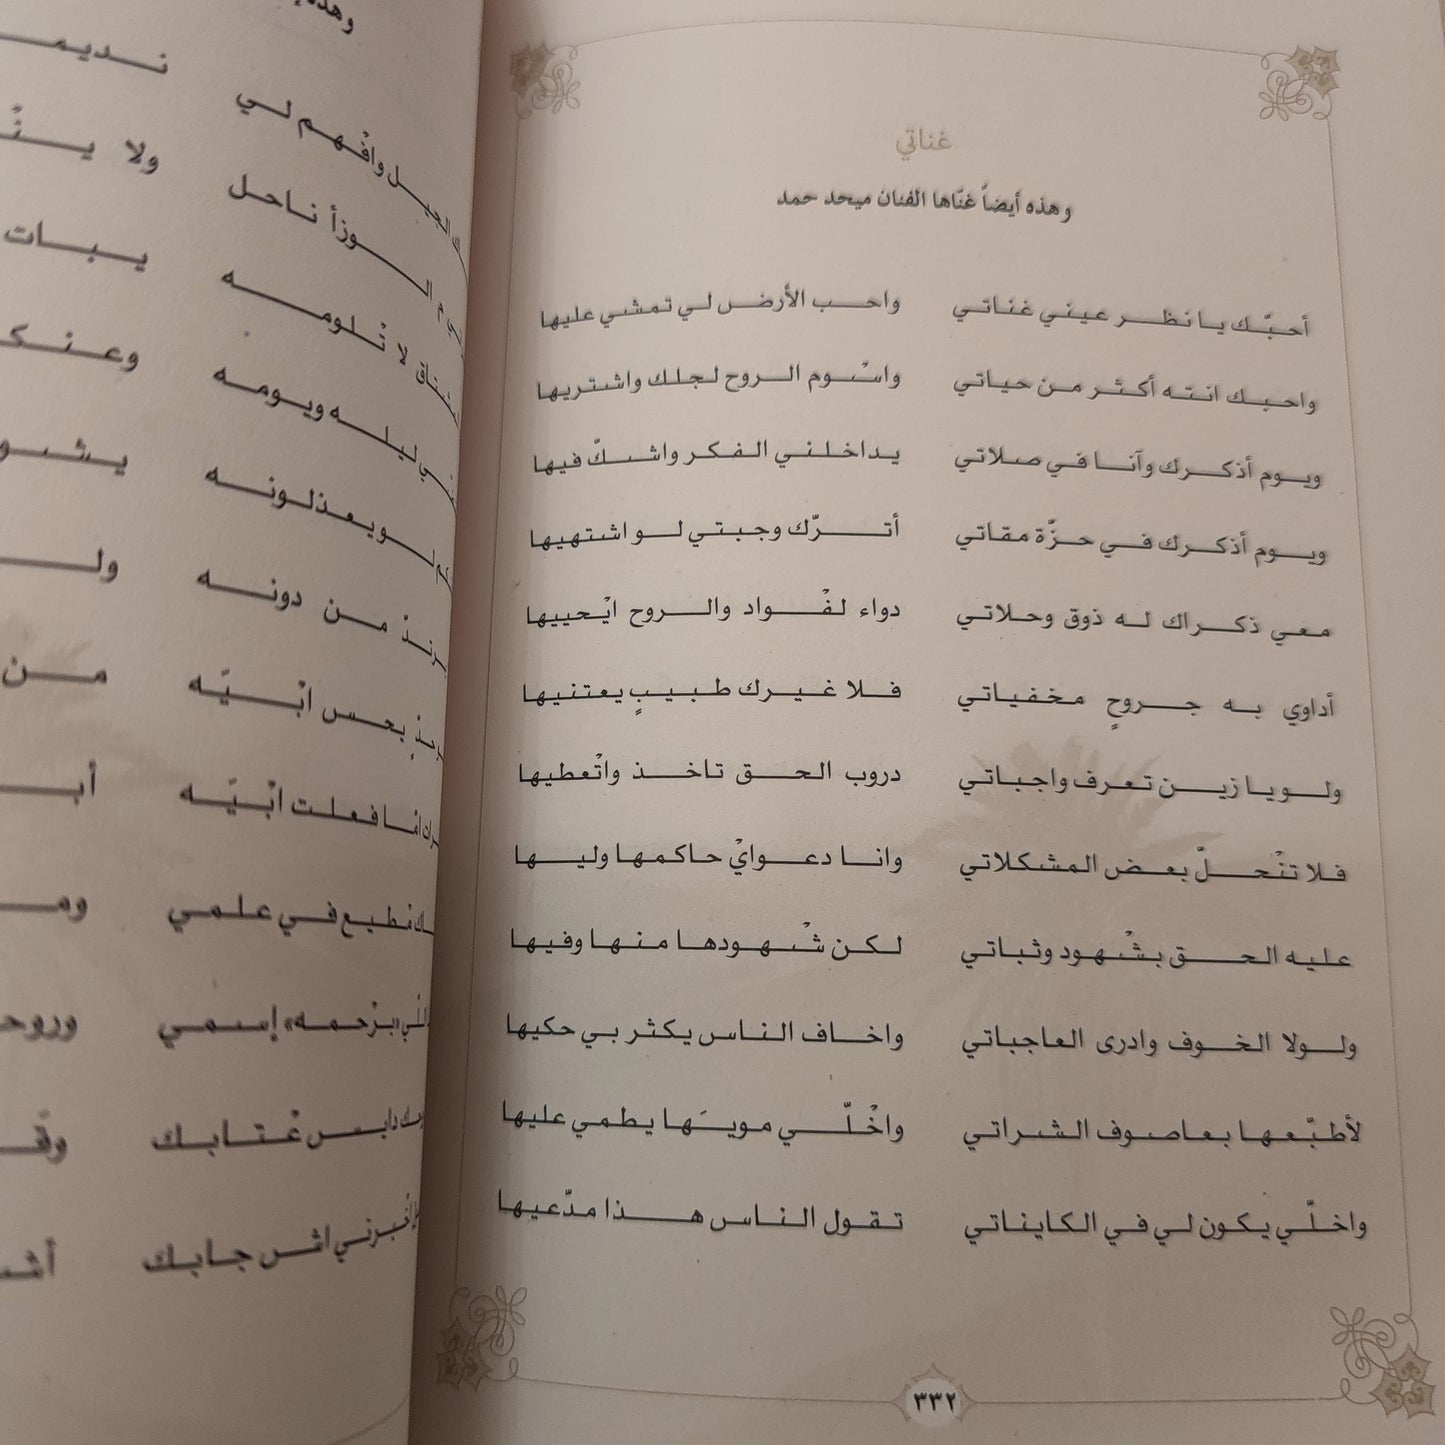 غناتي
وهذه أيضاً غنّاها الفنان ميحد حمد
أحبّك يا نظر عيني غناتي واحب الأرض لي تمشي عليها
واحبك انته أكثر من حياتي واسْوم الروح لجلك واشتريها
ويوم أذكرك وآنا في صلاتي يداخلني الفكر واشكّ فيها
ويوم أذكرك في حزّة مقاتي أترّك وجبتي لو اشتهيها
معي ذكراك له ذوق وحلاتي دواء لفْواد والروح ايْحييها
أداوي به جروحٍ مخفياتي فلا غيرك طبيبٍ يعتنيها
ولو يا زين تعرف واجباتي دروب الحق تاخذ واتْعطيها
فلا تنْحلّ بعض المشكلاتي وانا دعوايْ حاكمها وليها
عليه الحق بشْهود وثباتي لكن شْهودها منها وفيها
ولولا الخوف وادرى العاجباتي واخاف الناس يكثر بي حكيها
لأطبّعها بعاصوف الشراتي واخْلّي مويَها يطمي عليها
واخلّي يكون لي في الكايناتي تقول الناس هذا مدّعيها
٣٣٢
نديم
وافْهم لي
ولا
ناحل
يبات
لا تْلومه
وعنك
ليله ويومه
ويعذلونه
ول
من دونه
من
بحس ابْيّه
فعلت ابْيّه
نْطيع في علمي
وم
«برْحمه» إسمي
وروح
عْتابك
اش جابك